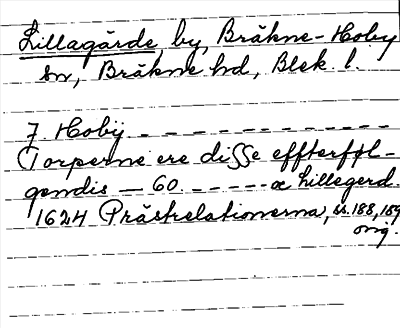 Lillagärde, by, Bräkne-Hoby
sn, Bräkne hd, Blek. l.
7 Hobÿ - - - - - - - - - - - - - -
Torperne ere disse effterføl-
gendis — 60 - - - - - - æ Lillegerd.
1624 Prästrelationerna, ss. 188, 189
orig.